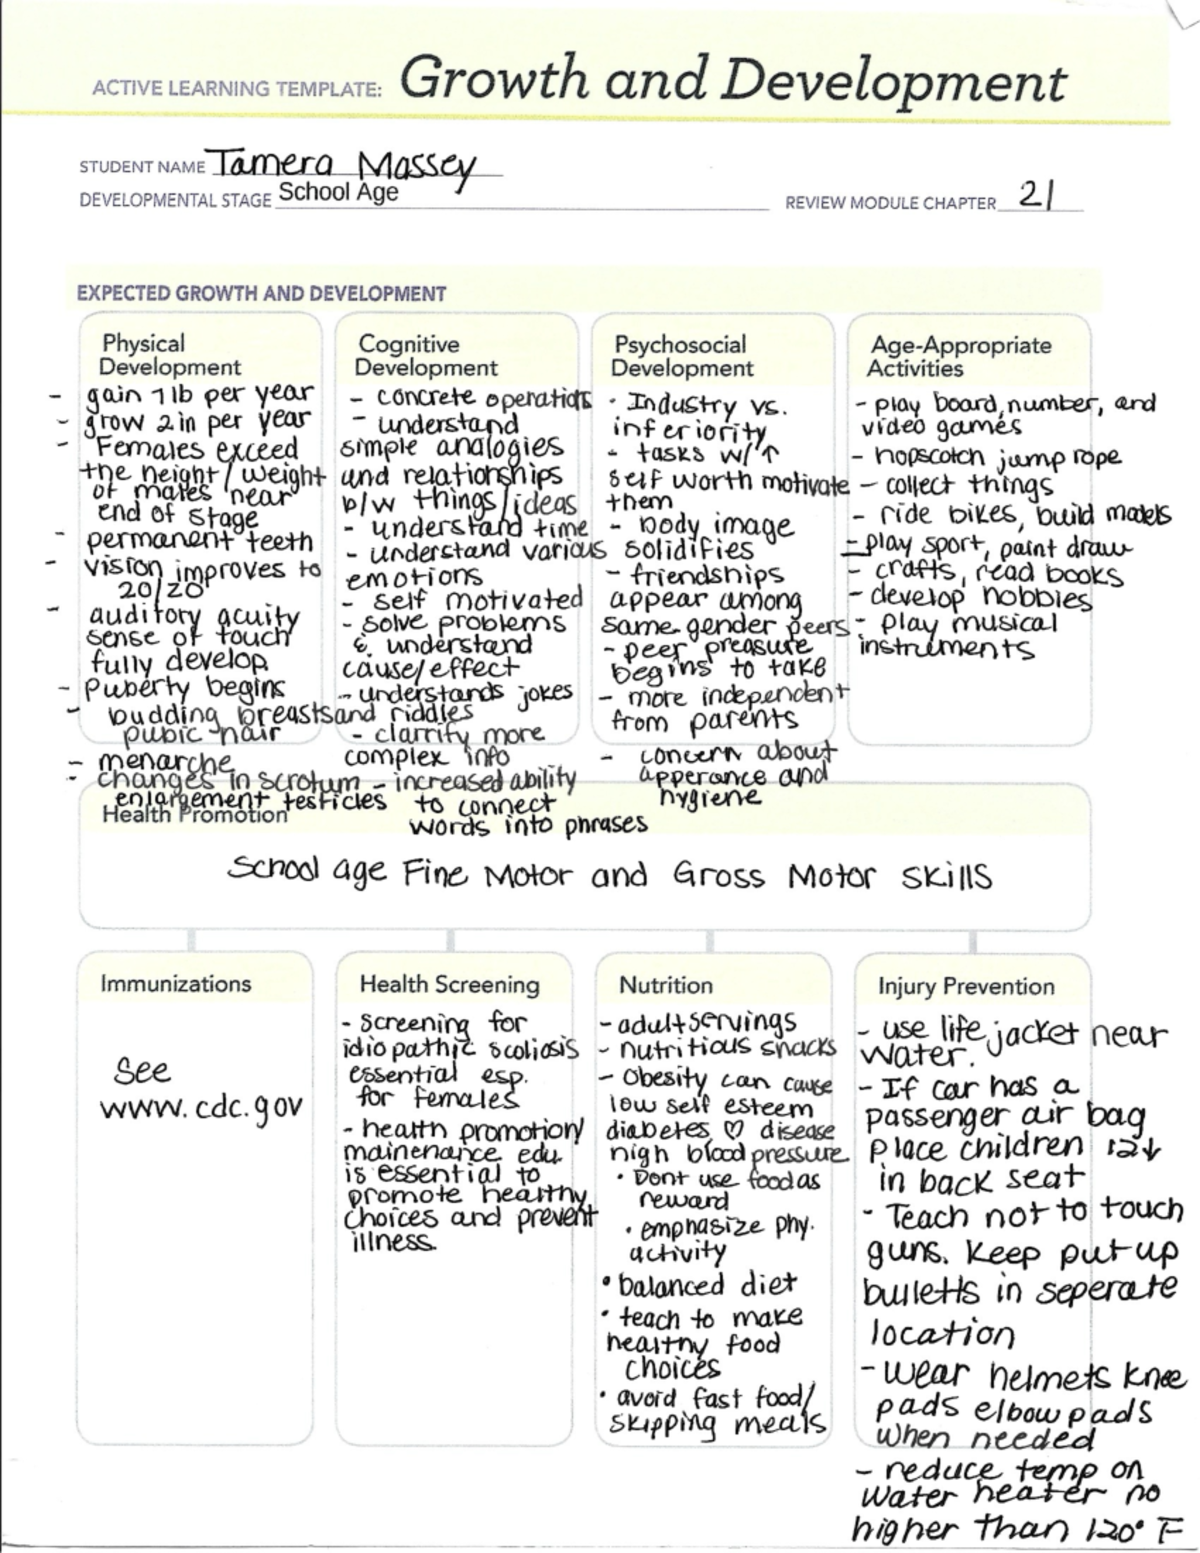 ACTIVE LEARNING TEMPLATE: Growth and Development
STUDENT NAME Tamera Massey
DEVELOPMENTAL STAGE School Age
REVIEW MODULE CHAPTER 21
EXPECTED GROWTH AND DEVELOPMENT
Physical
Development
- gain 7lb per year
- grow 2in per year
- Females exceed
the height/weight
of males near
end of stage
- permanent teeth
- vision improves to
20/20
- auditory acuity
sense of touch
fully develop
- Puberty begins
- budding breasts
pubic hair
- menarche
- changes in scrotum
enlargement testicles
Cognitive
Development
- concrete operations
- understand
simple analogies
and relationships
b/w things/ideas
- understand time
- understand various
emotions
- self motivated
- solve problems
& understand
cause/effect
- understands jokes
and riddles
- clarrify more
complex info
- increased ability
to connect
words into phrases
Psychosocial
Development
· Industry vs.
inferiority
- tasks w/↑
self worth motivate
them
- body image
solidifies
- friendships
appear among
same gender peers
- peer preasure
begins to take
- more independent
from parents
- concern about
apperance and
hygiene
Age-Appropriate
Activities
- play board, number, and
video games
- hopscotch jump rope
- collect things
- ride bikes, build models
- play sport, paint draw
- crafts, read books
- develop hobbies
- play musical
instruments
Health Promotion
School age Fine Motor and Gross Motor skills
Immunizations
see
www.cdc.gov
Health Screening
- screening for
idiopathic scoliosis
essential esp.
for females
- health promotion/
mainenance edu
is essential to
promote healthy
choices and prevent
illness.
Nutrition
- adult servings
- nutritious snacks
- Obesity can cause
low self esteem
diabetes ♡ disease
high blood pressure
• Dont use food as
reward
• emphasize phy.
activity
• balanced diet
• teach to make
healthy food
choices
• avoid fast food/
skipping meals
Injury Prevention
- use life jacket near
water.
- If car has a
passenger air bag
place children 12↓
in back seat
- Teach not to touch
guns. Keep put up
bulletts in seperate
location
- wear helmets knee
pads elbow pads
when needed
- reduce temp on
water heater no
higher than 120° F